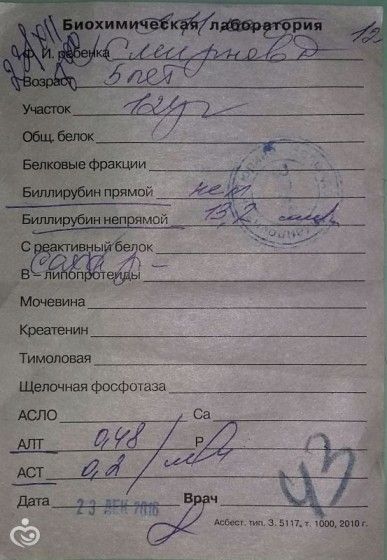 Биохимическая лаборатория
Ф. И. ребенка Смирнов Д
Возраст 5 лет
Участок 12 уч
Общ. белок
Белковые фракции
Биллирубин прямой нет
Биллирубин непрямой 13,2
С реактивный белок
Сахар -
В - липопротеиды
Мочевина
Креатенин
Тимоловая
Щелочная фосфотаза
АСЛО Са
АЛТ 0,48 Р
АСТ 0,2
43
Дата 23 ДЕК 2016 Врач
Асбест. тип. З. 5117, т. 1000, 2010 г.